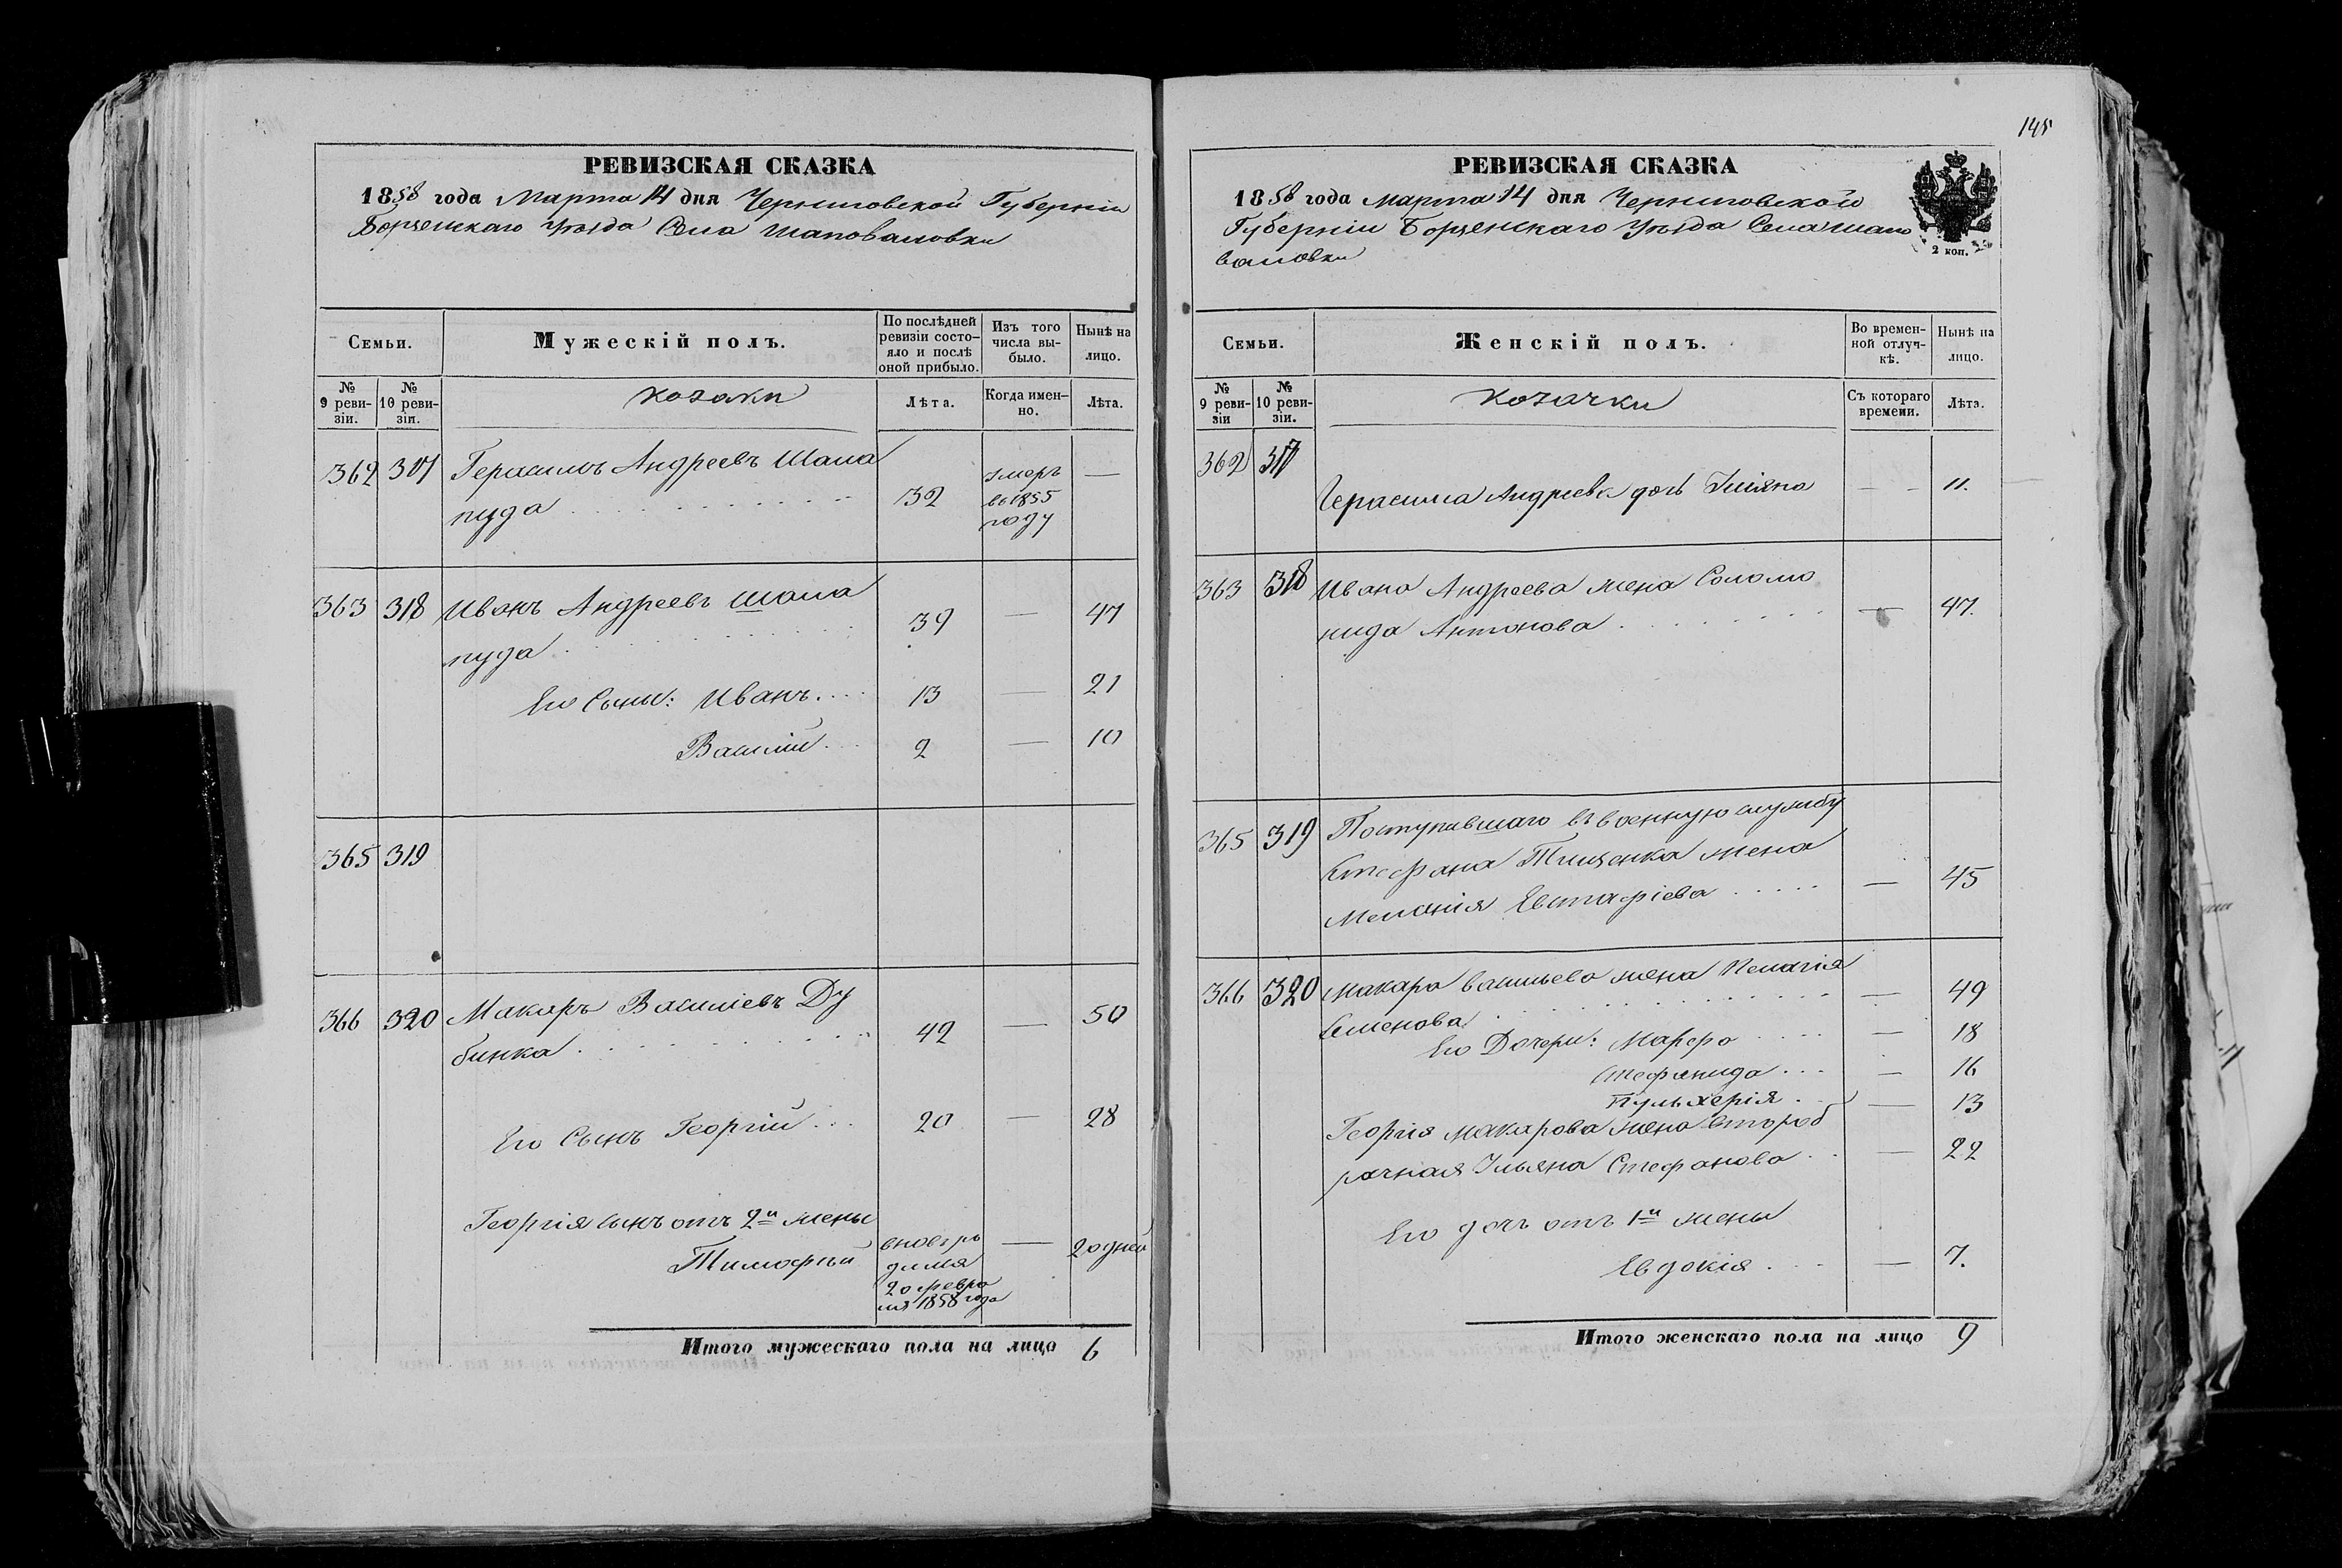 РЕВИЗСКАЯ СКАЗКА
1858 года Марта 14 дня Черниговской Губерніи
Борзенскаго Уѣзда Села Шаповаловки
Семьи.
Мужескій полъ.
По послѣдней ревизіи состояло и послѣ оной прибыло.
Изъ того числа выбыло.
Нынѣ на лицо.
№ 9 ревизіи.
№ 10 ревизіи.
козаки
Лѣта.
Когда именно.
Лѣта.
362 317 Герасимъ Андреевъ Шала
пуда 32 умеръ въ 1855 году —
363 318 Иванъ Андреевъ Шала
пуда 39 — 47
Его Сыны: Иванъ 13 — 21
Василій 2 — 10
365 319
366 320 Макаръ Василіевъ Ду
бинка 42 — 50
Его Сынъ Георгій 20 — 28
Георгія сынъ отъ 2й жены
Тимофей вновь ро
дился
20 февра
ля 1858 года — 20 дней
Итого мужескаго пола на лицо 6
145
РЕВИЗСКАЯ СКАЗКА
1858 года Марта 14 дня Черниговской
Губерніи Борзенскаго Уѣзда Села Шапо
валовки
2 коп.
Семьи.
Женскій полъ.
Во временной отлучкѣ.
Нынѣ на лицо.
№ 9 ревизіи
№ 10 ревизіи.
козачки
Съ котораго времени.
Лѣта.
362 317
Герасима Андреева дочь Ульяна — 11.
363 318 Ивана Андреева жена Соломо
нида Антонова — 47.
365 319 Поступившаго въ военную службу
Стефана Тищенка жена
Меланія Евстафіева — 45
366 320 Макара Васильева жена Пелагія
Семенова — 49
Его Дочери: Марфа — 18
Стефанида — 16
Пульхерія — 13
Георгія Макарова жена второб
рачная Ульяна Стефанова — 22
Его дочь отъ 1й жены
Евдокія — 7.
Итого женскаго пола на лицо 9